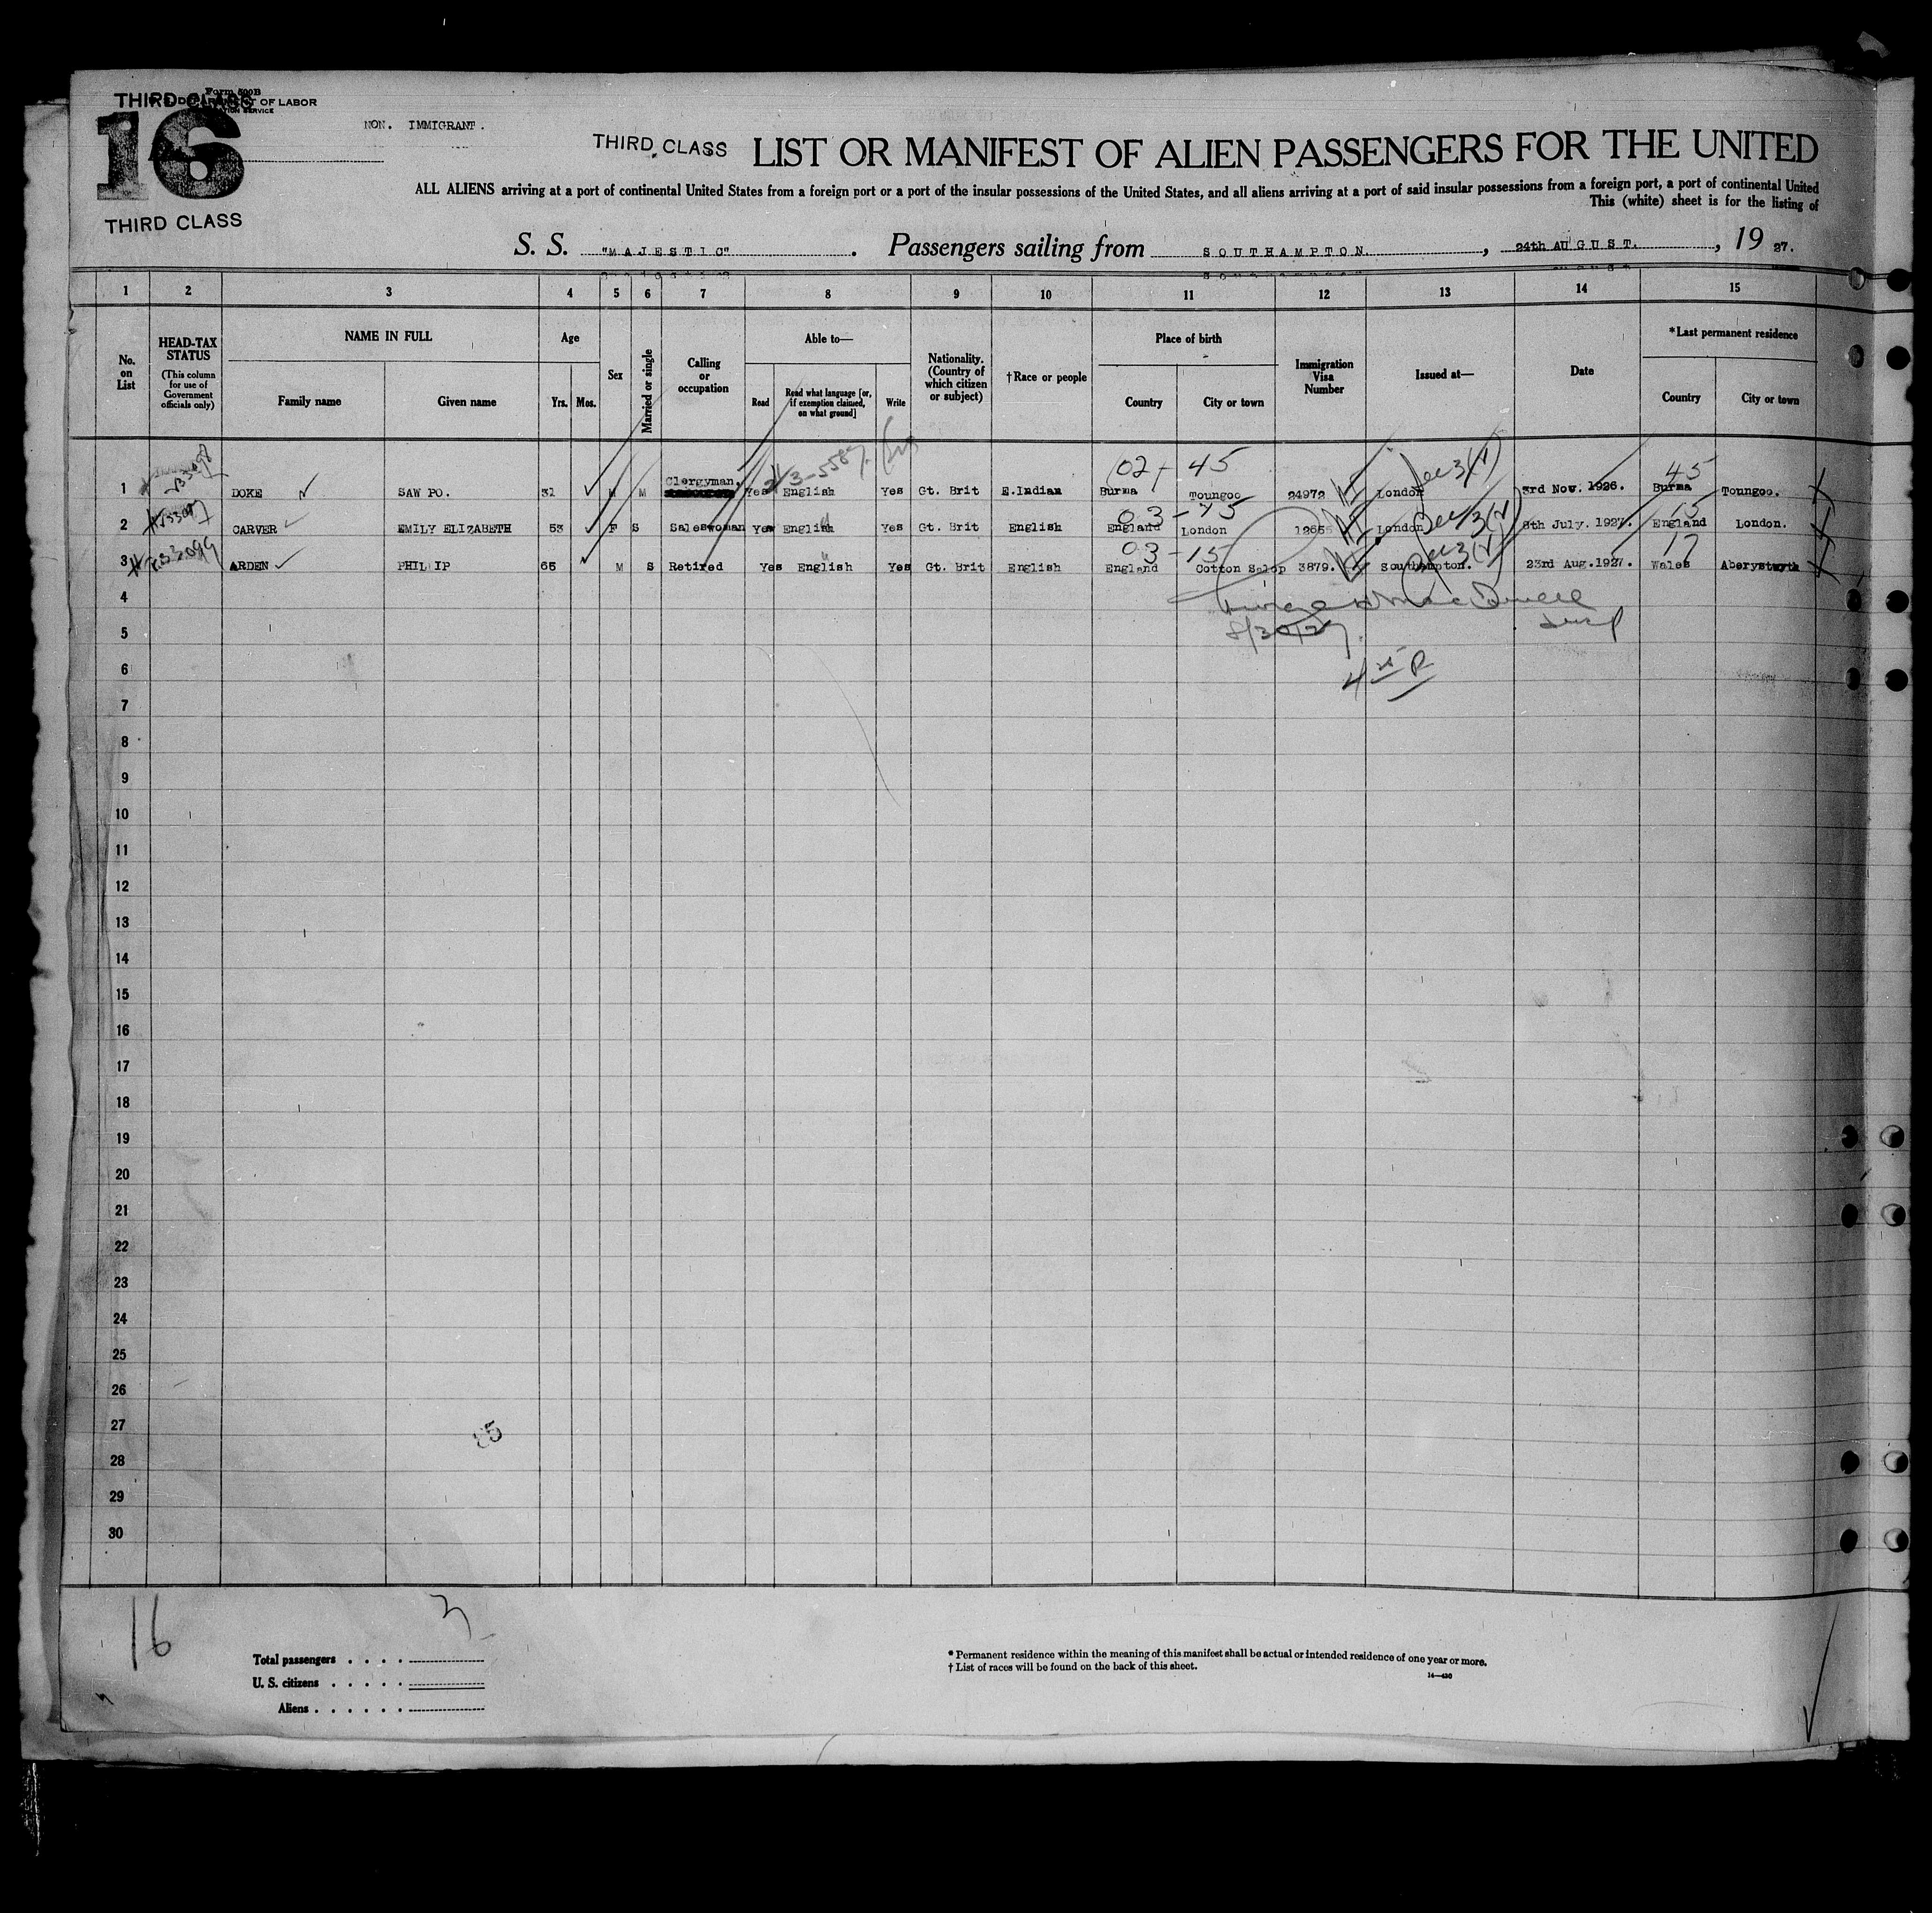 THIRD CLASS
Form 500B
DEPARTMENT OF LABOR
SERVICE
16
NON. IMMIGRANT.
THIRD CLASS
THIRD CLASS LIST OR MANIFEST OF ALIEN PASSENGERS FOR THE UNITED
ALL ALIENS arriving at a port of continental United States from a foreign port or a port of the insular possessions of the United States, and all aliens arriving at a port of said insular possessions from a foreign port, a port of continental United
This (white) sheet is for the listing of
S. S. "MAJESTIC" . Passengers sailing from SOUTHAMPTON. , 24th AUGUST. , 19 27.
1 2 3 4 5 6 7 8 9 10 11 12 13 14 15
No. on List
HEAD-TAX STATUS (This column for use of Government officials only)
NAME IN FULL
Family name
Given name
Age
Yrs. Mos.
Sex
Married or single
Calling or occupation
Able to—
Read
Read what language [or, if exemption claimed, on what ground]
Write
Nationality. (Country of which citizen or subject)
†Race or people
Place of birth
Country
City or town
Immigration Visa Number
Issued at—
Date
*Last permanent residence
Country
City or town
02 - 45
45
1 DOKE SAW PO. 31 M M Clergyman. Yes English Yes Gt. Brit E.Indian Burma Toungoo 24972 London 3rd Nov. 1926. Burma Toungoo.
15
2 CARVER EMILY ELIZABETH 53 F S Saleswoman Yes English Yes Gt. Brit English England London 12655 London 8th July. 1927. England London.
03 - 15
17
3 ARDEN PHILIP 65 M S Retired Yes English Yes Gt. Brit English England Cotton Salop 3879. Southampton. 23rd Aug.1927. Wales Aberystwyth
4
5
8/30/27
6
7
8
9
10
11
12
13
14
15
16
17
18
19
20
21
22
23
24
25
26
27
28
29
30
16
3
Total passengers
U. S. citizens
Aliens
* Permanent residence within the meaning of this manifest shall be actual or intended residence of one year or more.
† List of races will be found on the back of this sheet.
14—430